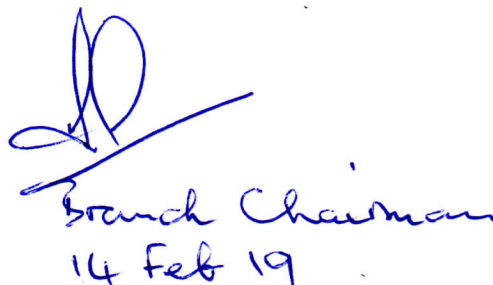 Branch Chairman
14 Feb 19